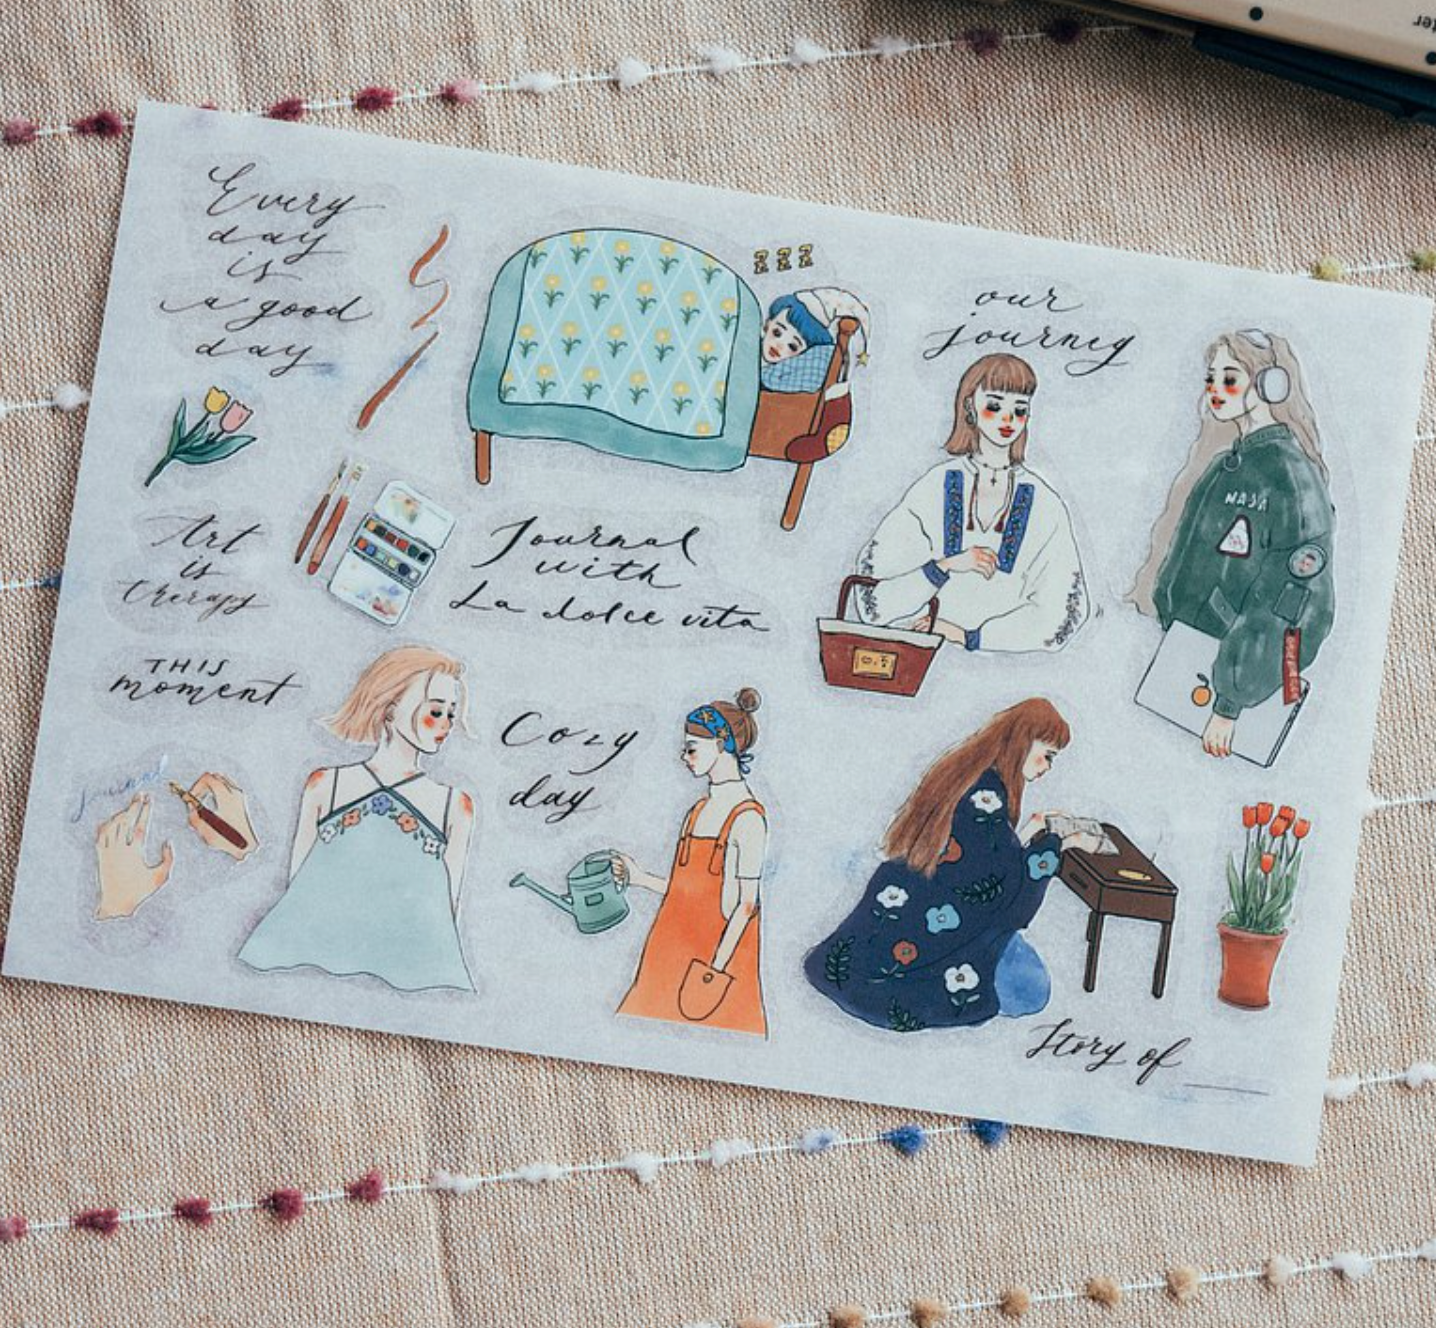 Every
day
is
a good
day
zzz
our
journey
NASA
Art
is
therapy
Journal
with
La dolce vita
THIS
moment
Journal
Cozy
day
Story of